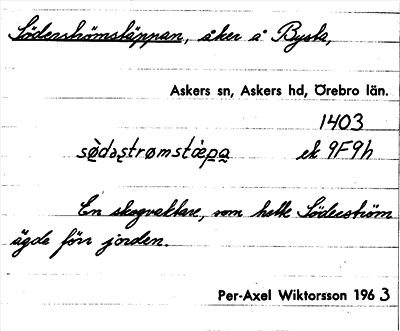 Söderströmstäppan, åker å Bysta,
Askers sn, Askers hd, Örebro län.
1403
sø̀dəʂtrømstæ̀pa ek 9F9h
En skogvaktare, som hette Söderström
ägde förr jorden.
Per-Axel Wiktorsson 1963